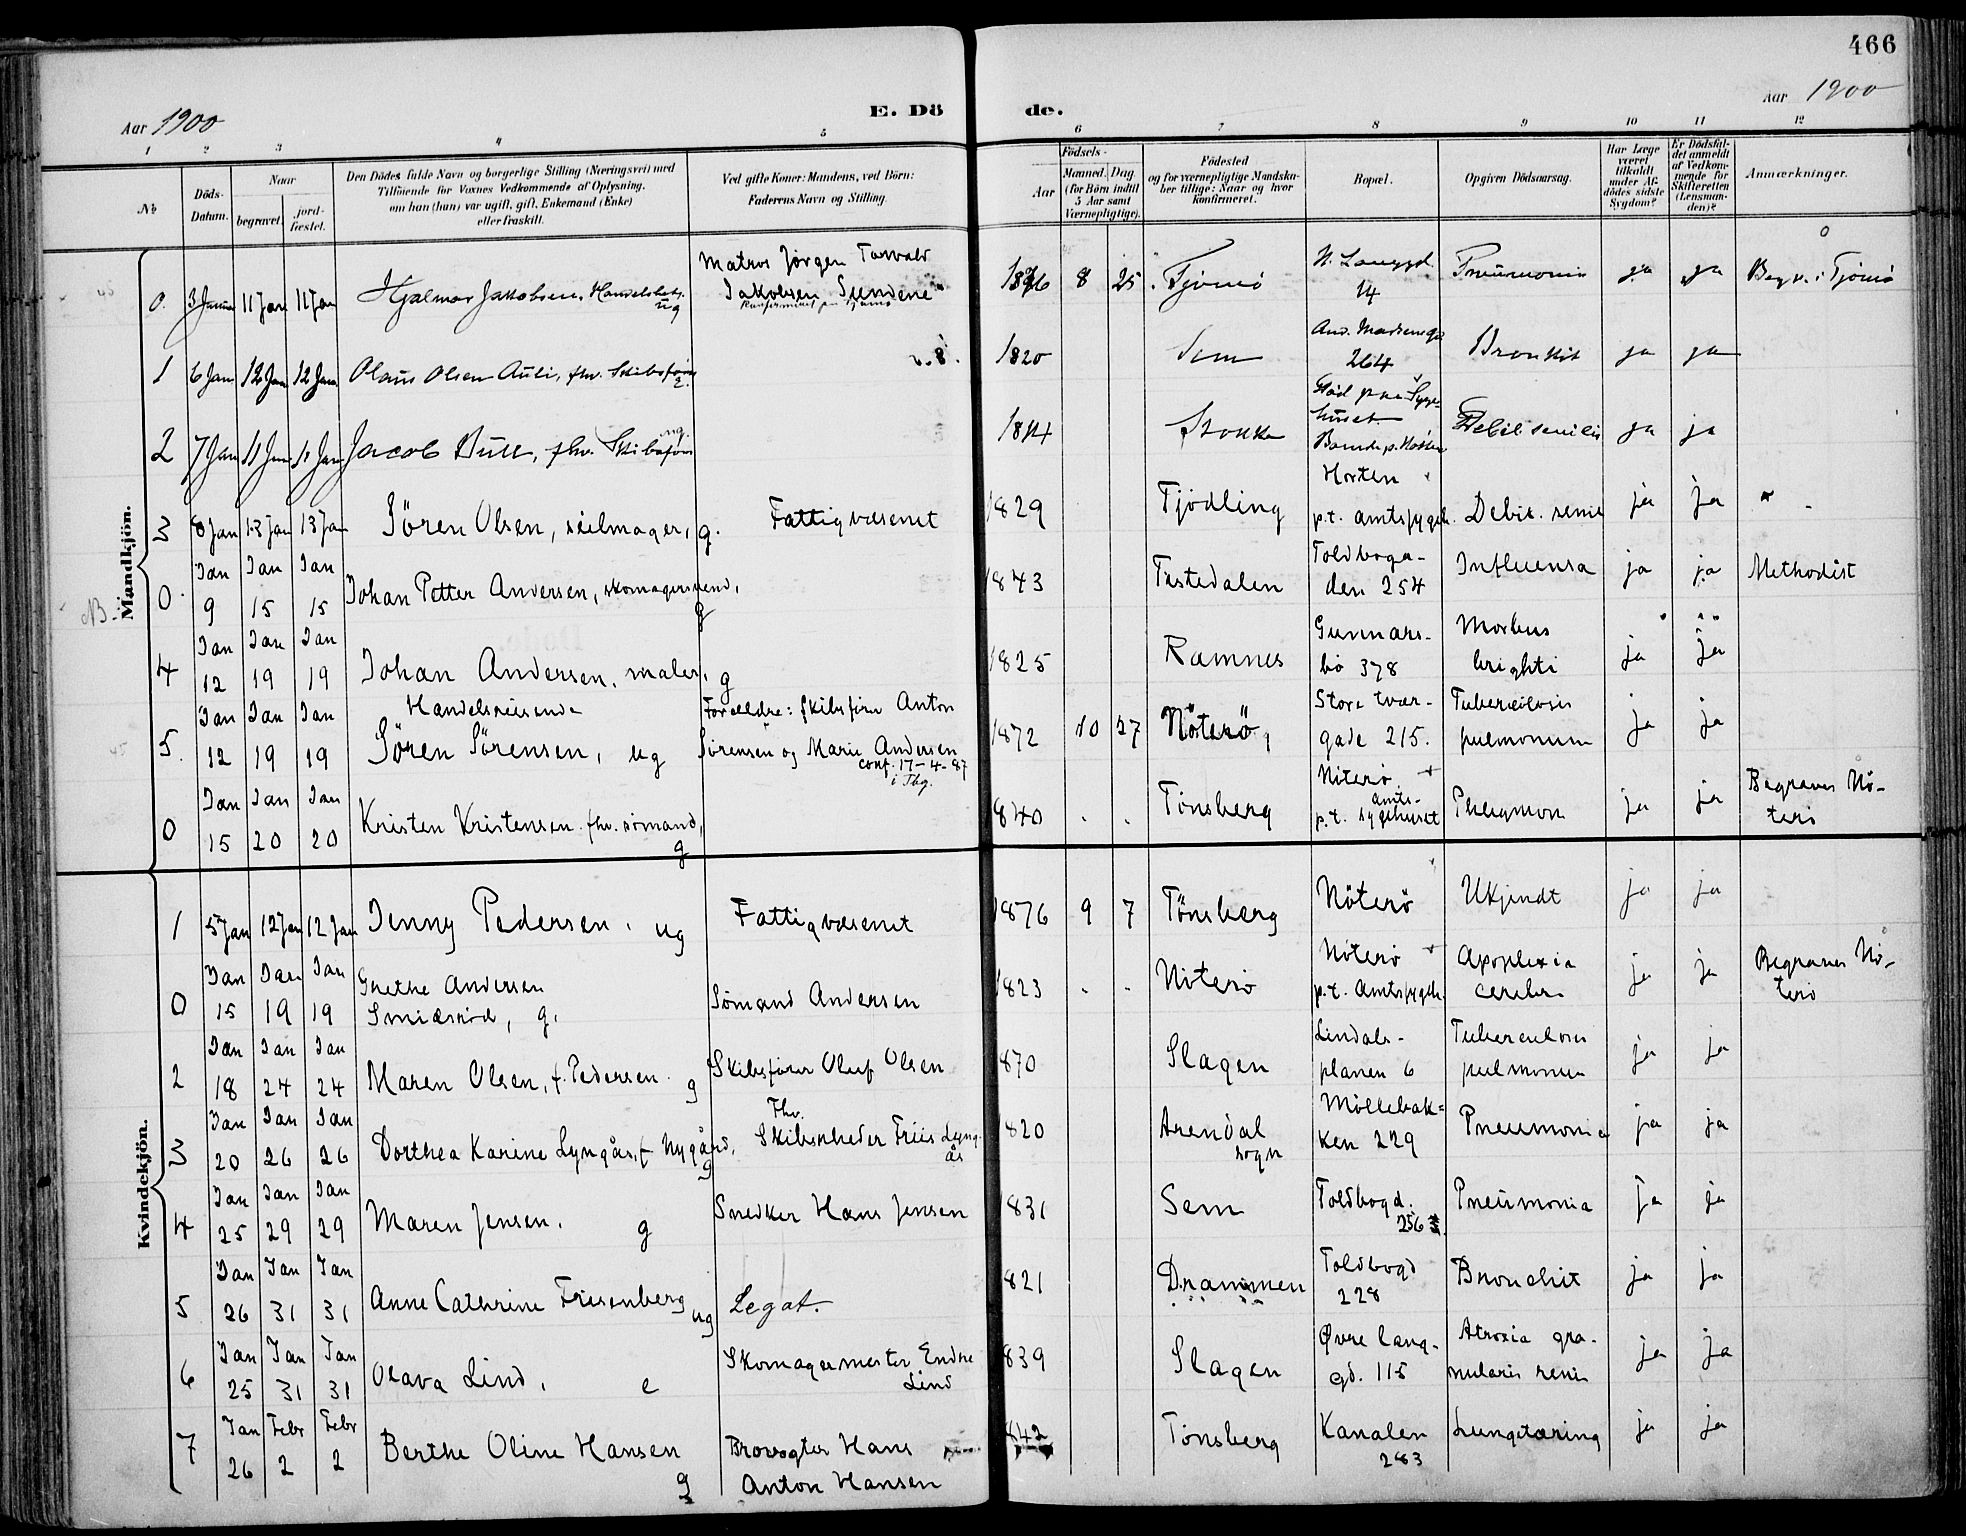 466
Aar 1900
E. Dö de.
Aar 1900
1 2 3 4 5 6 7 8 9 10 11 12
№
Döds-Datum.
Naar
begravet.
jordfæstet.
Den Dödes fulde Navn og borgerlige Stilling (Næringsvei) med
Tilföiende for Voxnes Vedkommende af Oplysning,
om han (hun) var ugift, gift, Enkemand (Enke)
eller fraskilt.
Ved gifte Koner: Mandens, ved Börn:
Faderens Navn og Stilling.
Födsels-
Aar
Maaned. Dag.
(for Börn indtil
5 Aar samt
Værnepligtige).
Födested
og for værnepligtige Mandskaber
tillige: Naar og hvor
konfirmeret.
Bopæl.
Opgiven Dödsaarsag.
Har Læge
været
tilkaldt
under Afdödes
sidste
Sygdom?
Er Dödsfaldet
anmeldt
af Vedkommende
for
Skifteretten
(Lensmanden)?
Anmærkninger.
Mandkjön.
0. 3 Januar 11 Jan 11 Jan Hjalmar Jakobsen, Handelsbetj. ug Matros Jörgen Torvald
Jakobsen Sundene
1876 8 25 Tjømø 14 Pneumonia ja ja Begr. i Tjömö
1 6 Jan 12 Jan 12 Jan Olaus Olsen Auli, fhv. Skibsförer e. 1820 Sem And. Madsensgd 264 Bronkit ja ja
2 7 Jan 11 Jan 11 Jan Jacob Bull, fhv. Skibsförer ug. 1814 Stokke Död paa Sygehuset Debil. senilis ja ja
3 8 Jan 13 Jan 13 Jan Sören Olsen, seilmager, g. Fattigvæsenet 1829 Tjödling Horten
p.t. amtssygeh. Debil. senil ja ja
0. Jan 9 Jan 15 Jan 15 Johan Petter Andersen, skomagersvend, g 1843 Tistedalen Toldboga-
den 254 Influensa ja ja Methodist
NB.
4 Jan 12 Jan 19 Jan 19 Johan Andersen, maler, g 1825 Ramnes Gunnars-
bö 378 Morbus
brighti ja ja
5. Jan 12 Jan 19 Jan 19 Handelsreisende
Sören Sörensen, ug Forældre: skibsförer Anton
Sörensen og Marie Andersen
conf. 17-4-87
i Tbg.
1872 10 27 Nöterö, Store tvær-
gade 215. Tuberculosis
pulmonum ja ja
0 Jan 15 Jan 20 Jan 20 Kristen Kristensen. fhv. sömand, g 840 Tönsberg Nöterö
p.t. amts-
sygehuset Phlegmon ja ja Begraves Nö-
terö
Kvindekjön.
1 5 Jan 12 Jan 12 Jan Jenny Pedersen. ug Fattigvæsenet 1876 9 7 Tönsberg Nöterö Ukjendt ja ja
0 Jan 15 Jan 19 Jan 19 Grethe Andersen
Smidsröd, g. Sömand Andersen 1823 Nöterö Nöterö
p.t. amtssygeh. Apoplexia
cerebri ja ja Begraves Nö-
terö
2 Jan 18 Jan 24 Jan 24 Maren Olsen, f. Pedersen. g Skibsförer Oluf Olsen 870 Slagen Lindals-
planen 6 Tuberculosis
pulmonum ja ja
3 Jan 20 Jan 26 Jan 26 Dorthea Karine Lyngås, f. Nygård, g Fhv.
Skibsrheder Friis Lyng-
ås
820 Arendal
sogn Möllebak-
ken 229 Pneumonia ja ja
4 Jan 25 Jan 29 Jan 29 Maren Jensen. g Snedker Hans Jensen 831 Sem Toldbogd.
256 Pneumonia ja ja
5 Jan 26 Jan 31 Jan 31 Anne Cathrine Friesenberg ug Legat. 821 Drammen Toldbogd
228 Bronchit ja ja
6 Jan 25 Jan 31 Jan 31 Olava Lind. e Skomagermester Endre
Lind 839 Slagen Øvre lang-
gd. 115 Atrosia gra-
nularis renis ja ja
7 Jan 26 Febr 2 Febr 2 Berthe Oline Hansen g Brovogter Hans
Anton Hansen 842 Tönsberg Kanalen
283 Lungetæring ja ja